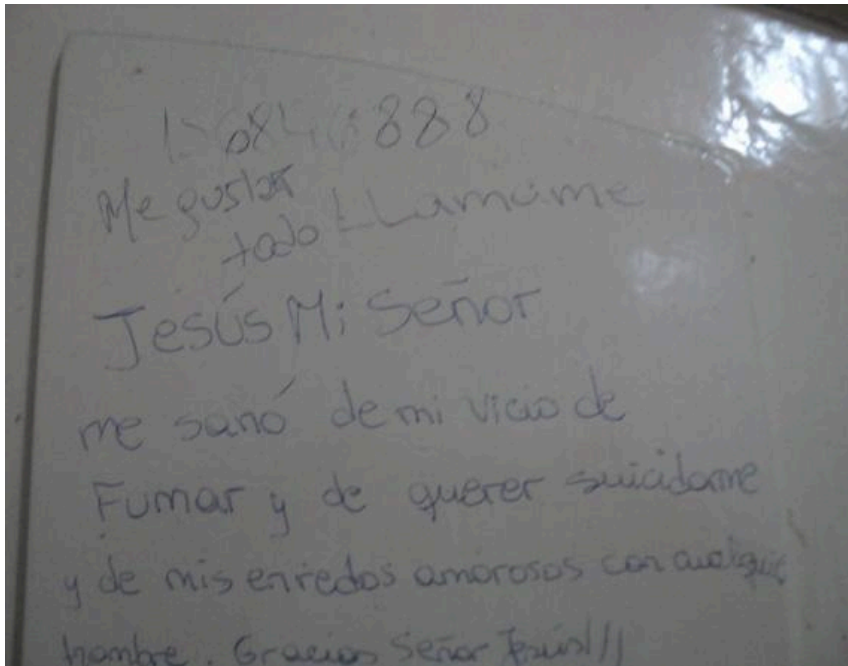 888
Me gusta
todo LLamame
Jesús Mi Señor
me sanó de mi vicio de
Fumar y de querer suicidarme
y de mis enredos amorosos con cualquier
hombre. Gracias Señor Jesús!!!